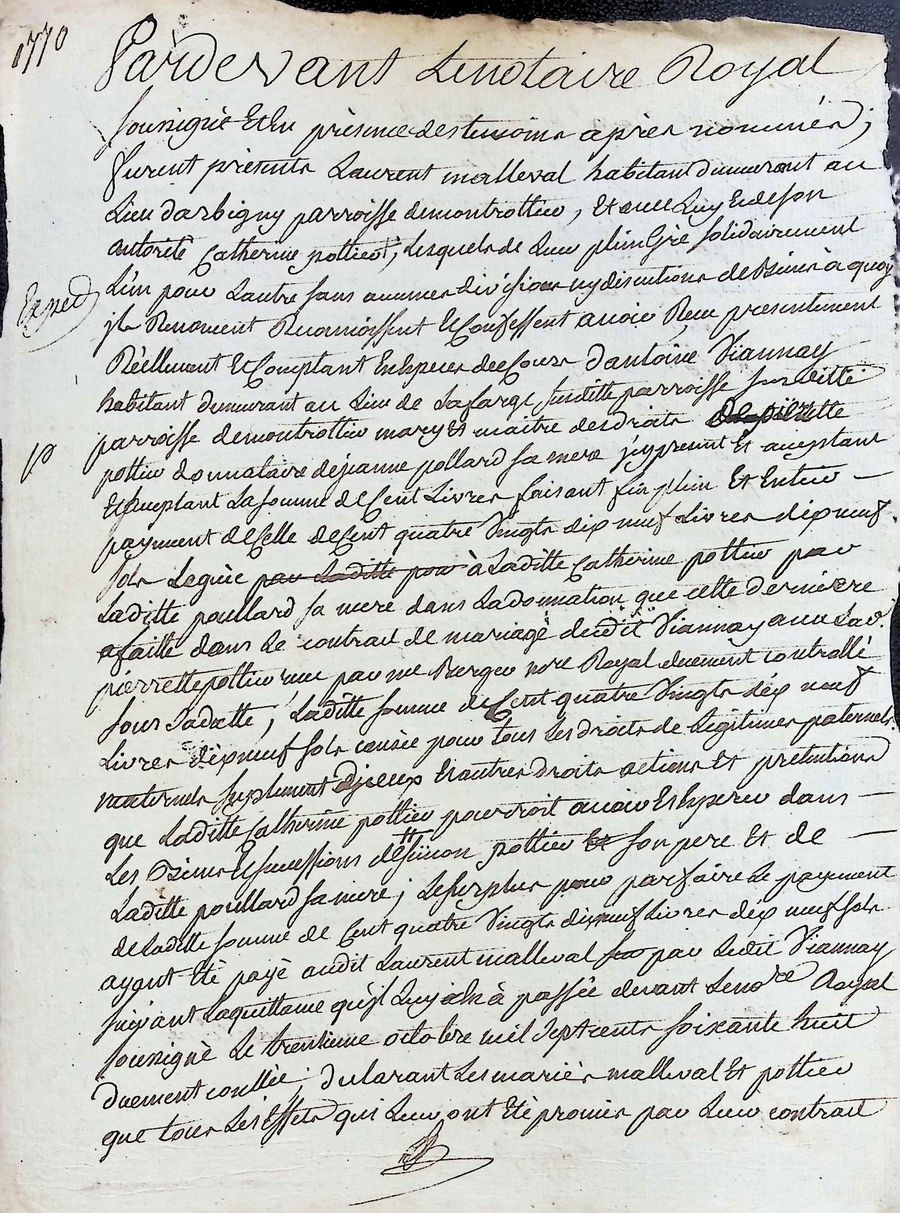 1770
Pardevant Lenotaire Royal
soussigné Et En présence des temoins apres nommés ;
furent présents Laurent malleval habitant demeurant au
Lieu darbigny parroisse demontrottier, Et avec Luy Et de son
autorité Catherine pottier, Lesquels de Leur plein Gré solidairement
L'un pour Lautre sans aucunes divisions ny discutions de Biens à quoy
Exped
jls Renoncent Reconnoissent Et Confessent avoir Reçu presentement
Réellement Et Comptant En Especes de Cours d'antoine Viannay
habitant demeurant au Lieu de Lafarge susditte parroisse susditte
parroisse demontrottier mary Et maitre des droits de pierrette
pottier donnataire de jeanne pollard sa mere j'cy present Et aceptant
Et Lasomme de Cent Livres faisant fin plein Et Entier
payment de Celle de Cent quatre Vingts dix neuf Livres dix neuf
sols Leguée par Laditte pour à Laditte Catherine pottier par
Laditte poullard sa mere dans Ladonnation que cette derniere
a faitte dans Le contrat de mariage dudit Viannay avec Lad.
pierrette pottier reçu par me Berger nore Royal duement controllé
sous sadatte ; Laditte somme de Cent quatre Vingts dix neuf
Livres dix neuf sols pour tous Les droits de Legitimes paternels
maternels suplement d'jceux Et autres droits actions Et pretentions
que Laditte Catherine pottier pourroit avoir Et Esperer dans
Les Biens Et successions de simon pottier Et son pere Et de
Laditte poullard sa mere ; Lesurplus pour parfaire Le payement
de Laditte somme de Cent quatre Vingts dix neuf Livres dix neuf sols
ayant Eté payé audit Laurent malleval par Ledit Viannay
suivant Laquittance qu'jl Luy En à passée devant Lenore Royal
soussigné Le trentieme octobre mil sept cents soixante huit
duement conllée ; declarant Les mariés malleval Et pottier
que tous Les Effets qui Leur ont Eté promis par Leur contrat